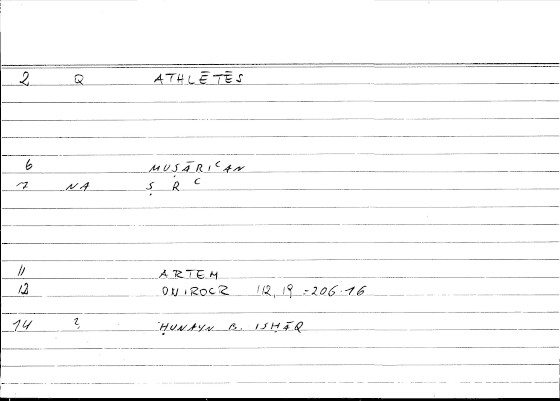 2 Q ATHLĒTĒS
6 MUṢĀRIᶜAN
7 NA Ṣ R ᶜ
11 ARTEM
12 ONIROCR 112,19 = 206.16
14 ? ḤUNAYN B. ISḤĀQ